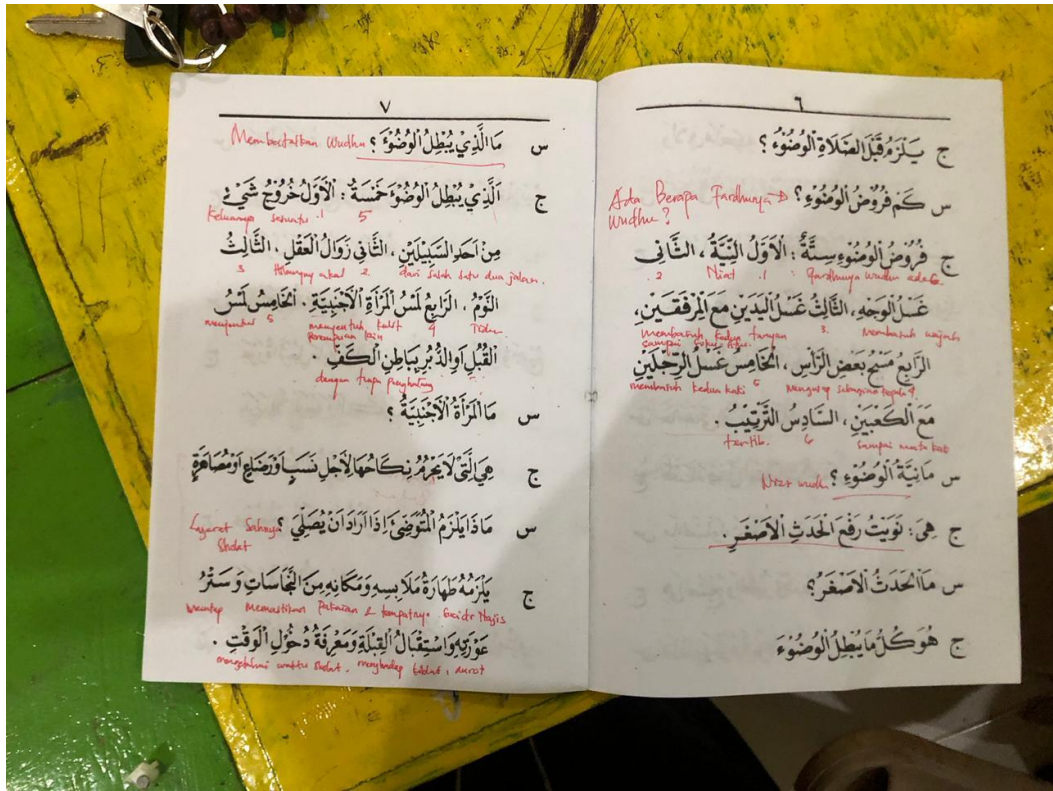 ٦
ج يَلْزَمُ قَبْلَ الصَّلَاةِ الْوُضُوْءُ ؟
س كَمْ فُرُوْضُ الْوُضُوْءِ ؟
Ada Berapa Fardhunya
Wudhu ?
ج فُرُوْضُ الْوُضُوْءِ سِتَّةٌ : اَلْاَوَّلُ النِّيَّةُ ، الثَّانِى
2. Niat 1. : fardhunya wudhu ada 6.
غَسْلُ الْوَجْهِ ، الثَّالِثُ غَسْلُ الْيَدَيْنِ مَعَ الْمِرْفَقَيْنِ ،
membasuh kedua tangan 3. Membasuh wajah
sampai siku-siku.
الرَّابِعُ مَسْحُ بَعْضِ الرَّأْسِ ، الْخَامِسُ غَسْلُ الرِّجْلَيْنِ
membasuh kedua kaki 5 Mengusap sebagian kepala 4.
مَعَ الْكَعْبَيْنِ ، السَّادِسُ التَّرْتِيْبُ .
tertib. 6 sampai mata kaki
س مَانِيَّةُ الْوُضُوْءِ ؟
Niat wudhu
ج هِيَ : نَوَيْتُ رَفْعَ الْحَدَثِ الْاَصْغَرِ .
س مَا الْحَدَثُ الْاَصْغَرُ ؟
ج هُوَ كُلُّ مَا يُبْطِلُ الْوُضُوْءَ
٧
س مَا الَّذِيْ يُبْطِلُ الْوُضُوْءَ ؟
Membatalkan Wudhu
ج اَلَّذِيْ يُبْطِلُ الْوُضُوْءَ خَمْسَةٌ : اَلْاَوَّلُ خُرُوْجُ شَيْءٍ
Keluarnya sesuatu .1 5
مِنْ اَحَدِ السَّبِيْلَيْنِ ، الثَّانِى زَوَالُ الْعَقْلِ . الثَّالِثُ
3 Hilangnya akal 2 dari salah satu dua jalan.
النَّوْمُ . الرَّابِعُ لَمْسُ الْمَرْأَةِ الْاَجْنَبِيَّةِ . اَلْخَامِسُ لَمْسُ
menyentuh 5 menyentuh kulit 4 Tidur
perempuan lain
الْقُبُلِ اَوِ الدُّبُرِ بِبَاطِنِ الْكَفِّ .
dengan tanpa penghalang
س مَا الْمَرْأَةُ الْاَجْنَبِيَّةُ ؟
ج هِيَ الَّتِىْ لَا يَحْرُمُ نِكَاحُهَا لِاَجْلِ نَسَبٍ اَوْ رَضَاعٍ اَوْ مُصَاهَرَةٍ
س مَاذَا يَلْزَمُ الْمُتَوَضِّئَ اِذَا اَرَادَ اَنْ يُصَلِّيَ ؟
Syarat Sahnya
Sholat
ج يَلْزَمُهُ طَهَارَةُ مَلَابِسِهِ وَمَكَانِهِ مِنَ النَّجَاسَاتِ وَسَتْرُ
Memastikan Pakaian & tempatnya. Suci dr Najis
عَوْرَتِهِ وَاسْتِقْبَالُ الْقِبْلَةِ وَمَعْرِفَةُ دُخُوْلِ الْوَقْتِ .
mengetahui waktu sholat. menghadap kiblat , aurat